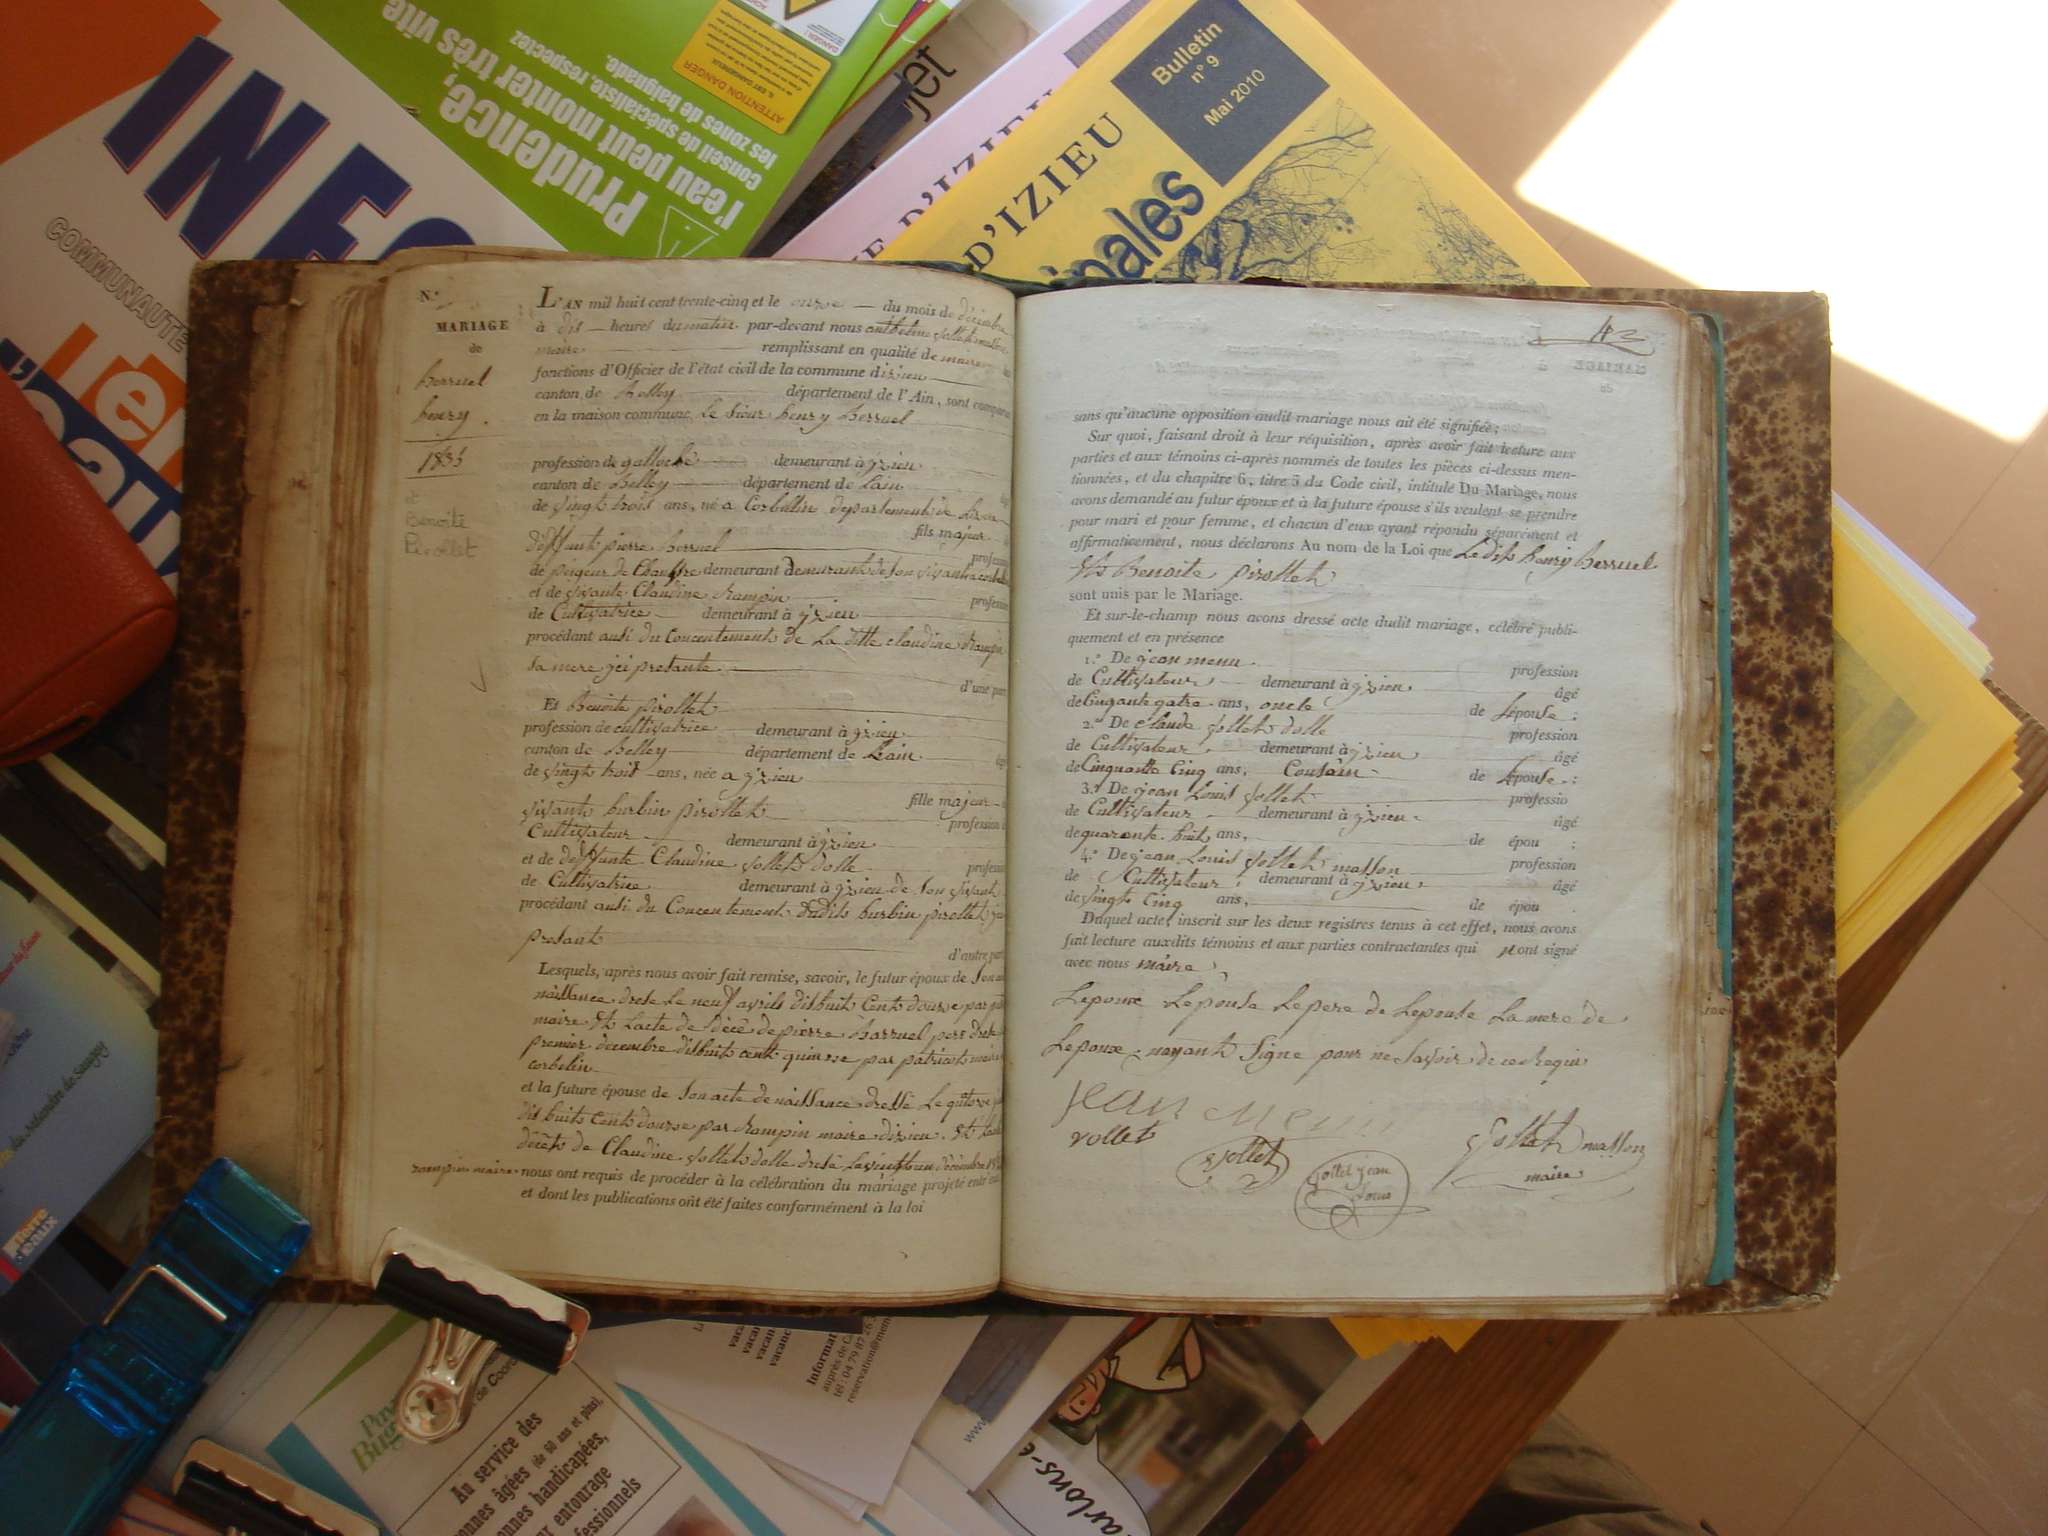 INFO
COMMUNAUTE
Prudence,
l'eau peut monter très vite
conseil de spécialiste, respectez
les zones de baignade.
ATTENTION DANGER
Bulletin
n° 9
Mai 2010
D'IZIEU
E D'IZIEU
ipales
N.°
MARIAGE
de
herruel
henry
1835
et
Benoite
Pirollet
L'AN mil huit cent trente-cinq et le onze du mois de décembre
à dis heures du matin par-devant nous anthelme vollet masson
maire remplissant en qualité de maire
fonctions d'Officier de l'état civil de la commune d izieu
canton de belley département de l'Ain, sont comparus
en la maison commune, Le sieur henry herruel
profession de galloché demeurant à yzieu
canton de Belley département de Lain
de vingt trois ans, né a Corbelin département de Lizere
fils majeur
deffunt pierre herruel profession
de pigeur de Chanvre demeurant demeurant de son vivant a corbelin
et de vivante Claudine Rampin profession
de Cultivatrice demeurant à yzieu
procédant ausi du Concentement de La ditte claudine Rampin
sa mere ici presante
d'une part
Et Benoite pirollet
profession de cultivatrice demeurant à yzieu
canton de Belley département de Lain
de vingt trois ans, née a yzieu
fille majeur
vivant burbin pirollet profession
Cultivateur demeurant à yzieu
et de deffunte Claudine vollet dolle profession
de Cultivatrice demeurant à yzieu de son vivant
procédant ausi du Concentement dudits burbin pirollet
presant
d'autre part
Lesquels, après nous avoir fait remise, savoir, le futur époux de son
naissance drese Le neuf avrils dishuit Cents douse par
maire Et Lacte de décè de pierre harruel pere drese
premier décembre dishuits cent quinse par patricot maire
corbelin
et la future épouse de son acte de naissance dressé Le
dishuits Cents douse par Rampin maire dizieu. Et
décèts de Claudine vollets dolle dresé Le vingt un décembre
rampin maire nous ont requis de procéder à la célébration du mariage projeté entre eux
et dont les publications ont été faites conformément à la loi
43
sans qu'aucune opposition audit mariage nous ait été signifiée;
Sur quoi, faisant droit à leur réquisition, après avoir fait lecture aux
parties et aux témoins ci-après nommés de toutes les pièces ci-dessus men-
tionnées, et du chapitre 6, titre 5 du Code civil, intitulé Du Mariage, nous
avons demandé au futur époux et à la future épouse s'ils veulent se prendre
pour mari et pour femme, et chacun d'eux ayant répondu séparément et
affirmativement, nous déclarons Au nom de la Loi que Le dits henry herruel
Ets Benoite pirollet
sont unis par le Mariage.
Et sur-le-champ nous avons dressé acte dudit mariage, célébré publi-
quement et en présence
1.° De jean menu profession
de Cultivateur demeurant à yzieu âgé
de Cinquante qatre ans, oncle de Lépouse ;
2.° De claude vollet dolle profession
de Cultivateur demeurant à yzieu âgé
de Cinquante Cinq ans, Cousain de Lépouse ;
3.° De jean Louis vollet professio
de Cultivateur demeurant à yzieu âgé
de quarante huit ans, de épou ;
4.° De jean Louis vollet masson profession
de Cultivateur demeurant à yzieu âgé
de vingts Cinq ans, de épou .
Duquel acte, inscrit sur les deux registres tenus à cet effet, nous avons
fait lecture auxdits témoins et aux parties contractantes qui ont signé
avec nous maire
Lepoux Lépouse Le pere de Lepouse La mere de
Lepoux nayant Signe pour ne savoir de ce Requi
jean Menu
vollet
vollet
vollet jean
Louis
vollet masson
maire
Au service des
(de 60 ans et plus),
onnes handicapées,
entourage
ofessionnels